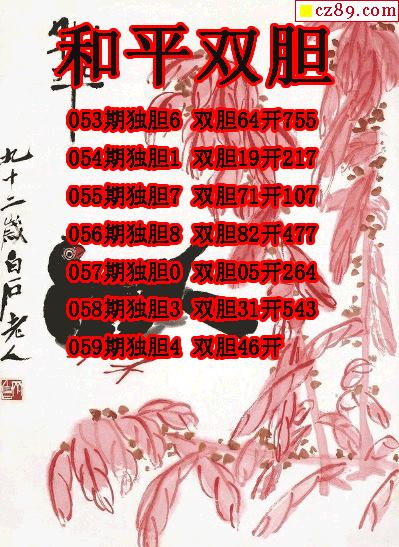 cz89.com
和平双胆
053期独胆6 双胆64开755
054期独胆1 双胆19开217
055期独胆7 双胆71开107
056期独胆8 双胆82开477
057期独胆0 双胆05开264
058期独胆3 双胆31开543
059期独胆4 双胆46开
九十二岁白石老人